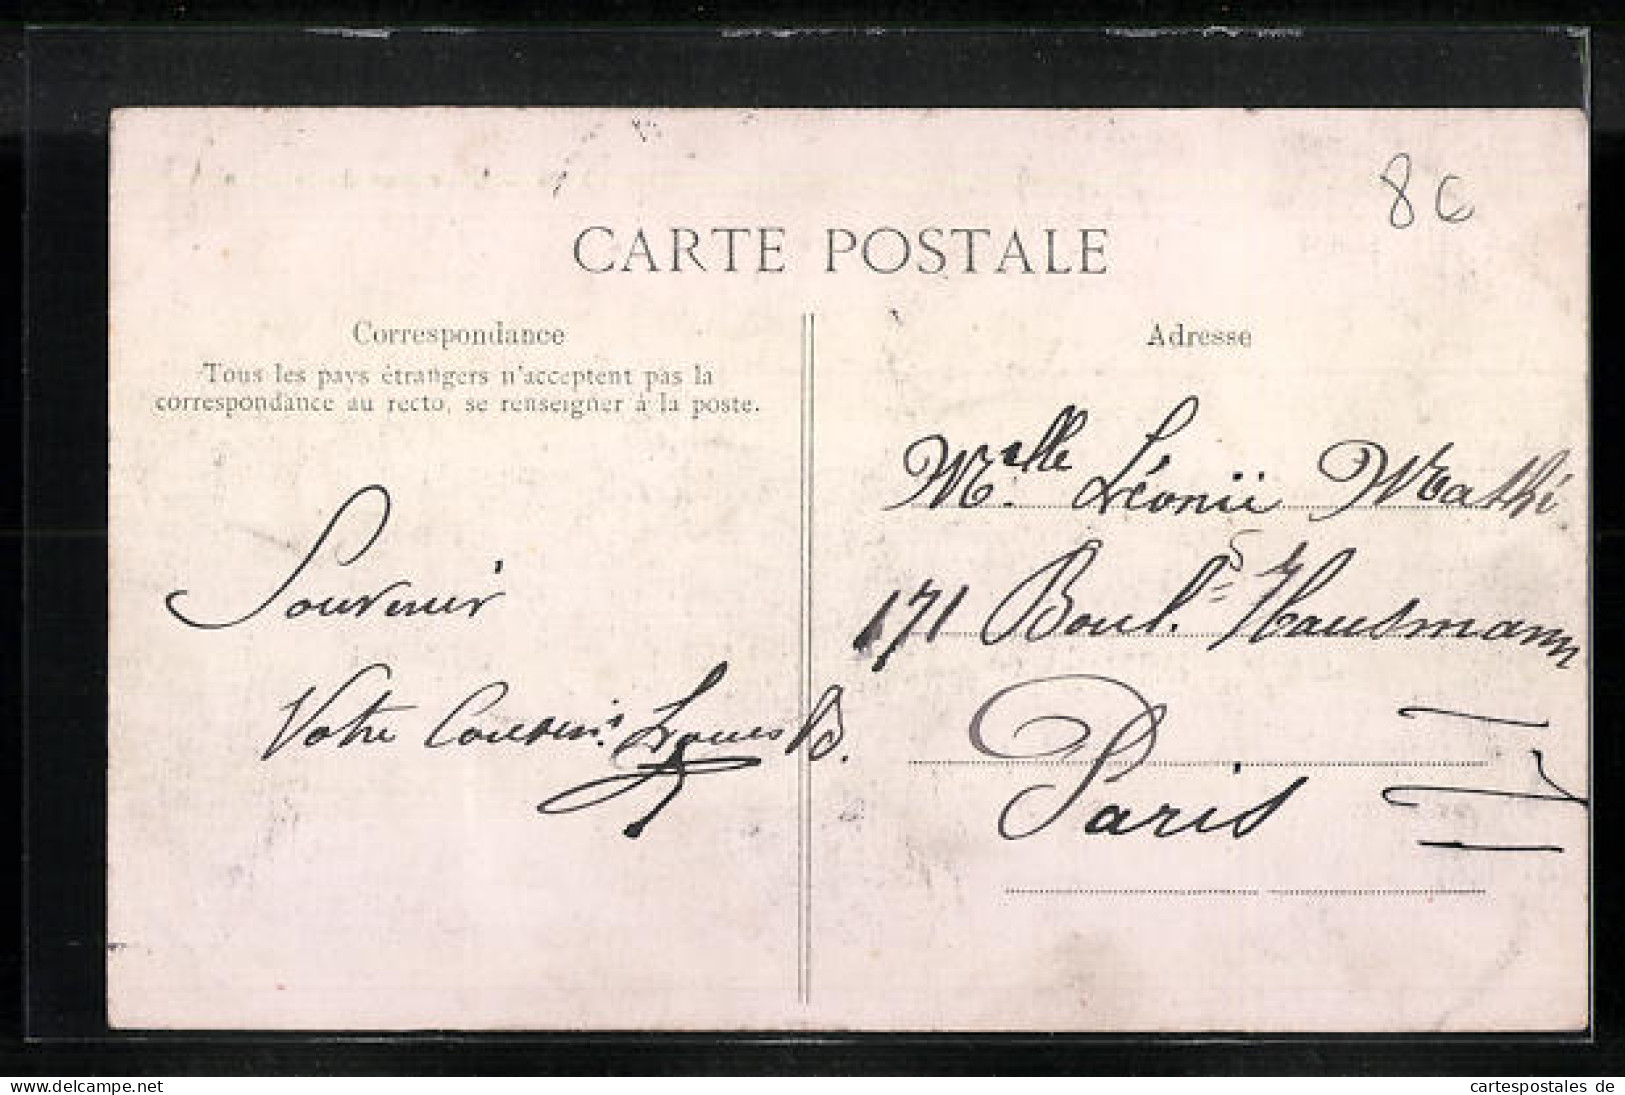 8 €
CARTE POSTALE
Correspondance
Tous les pays étrangers n'acceptent pas la
correspondance au recto, se renseigner à la poste.
Souvenir
Votre Cousin. Louis B.
Adresse
Melle Léonie Mathi
171 Boul.d Hausmann
Paris
www.ansichtskartenversand.com
cartespostales de